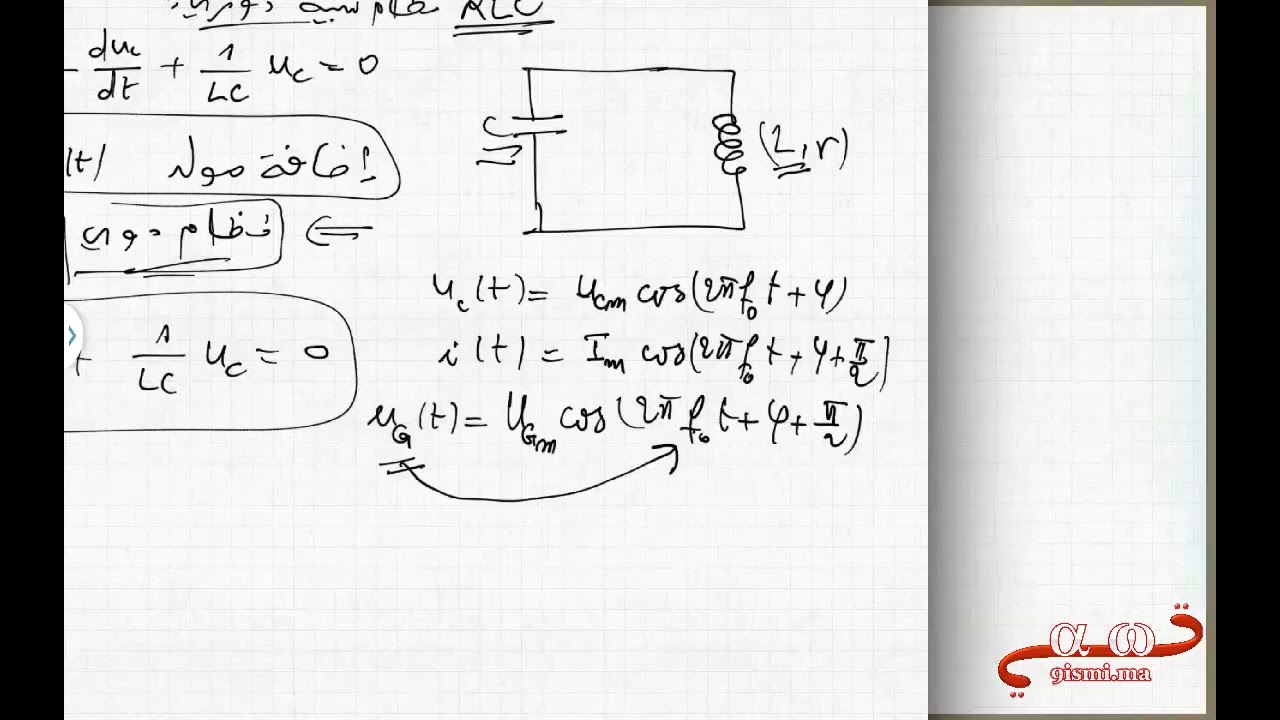 RLC
du_c/dt + 1/LC u_c = 0
إضافة مولد (t)
⇐ نظام دوري
+ 1/LC u_c = 0
C
(L, r)
u_c(t) = U_cm cos(2πf₀t + φ)
i(t) = I_m cos(2πf₀t + φ + π/2)
u_G(t) = U_Gm cos(2πf₀t + φ + π/2)
α ω
9ismi.ma